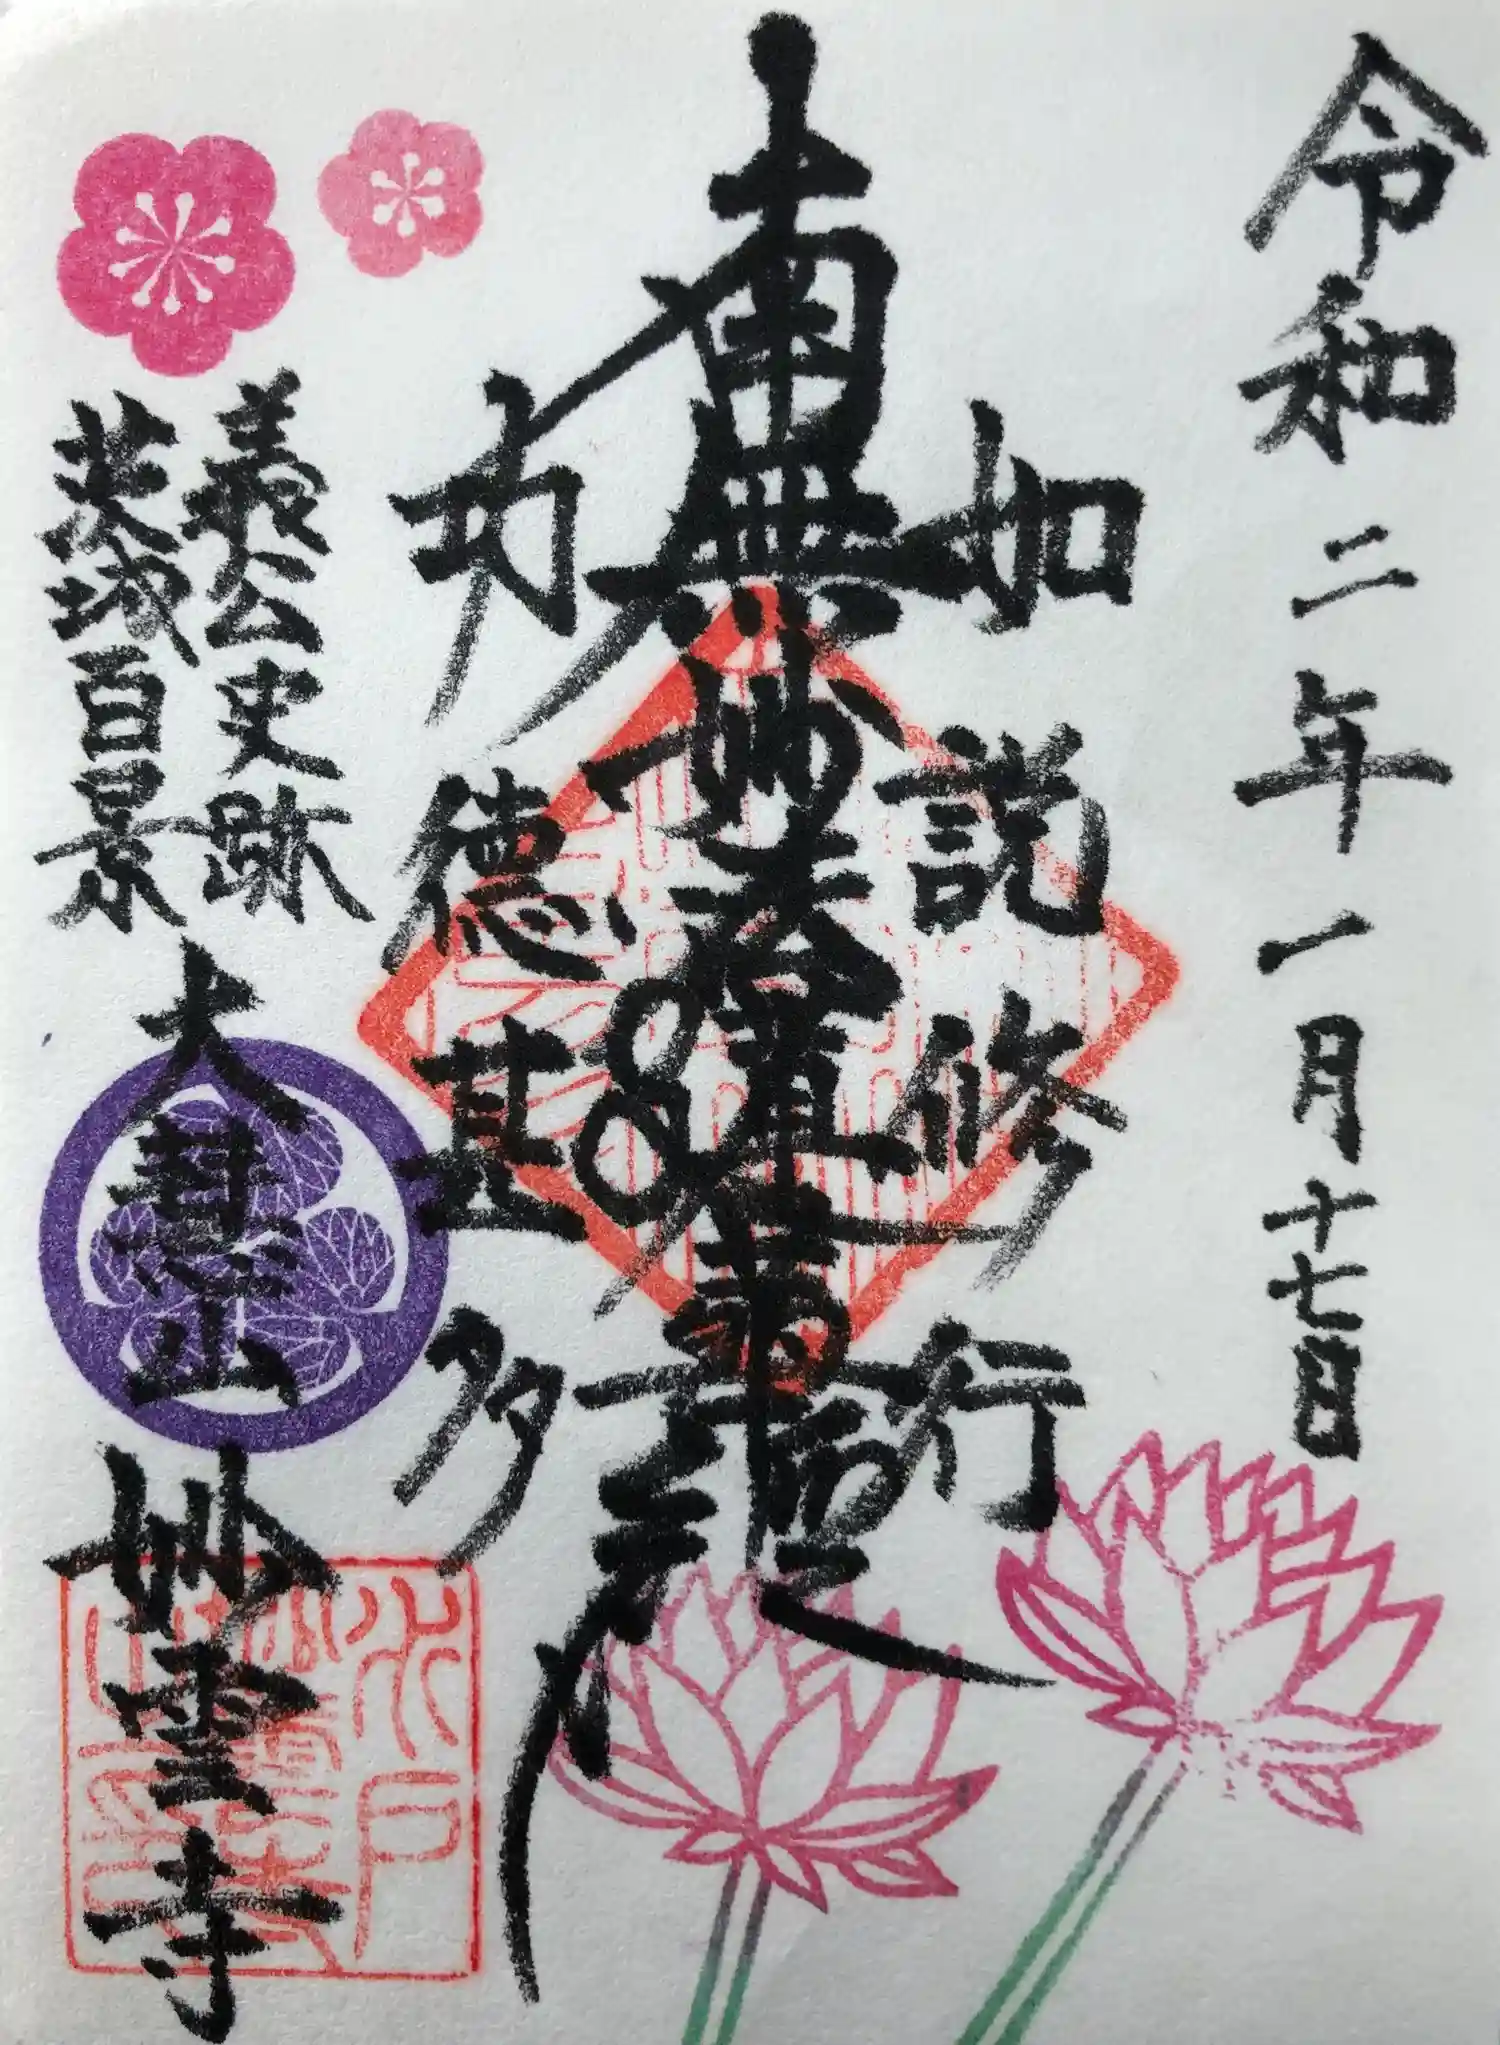 令和二年一月十七日
如説修行
南無妙法蓮華経
功徳甚多
義公史跡
茨城百景
大慧山
妙雲寺